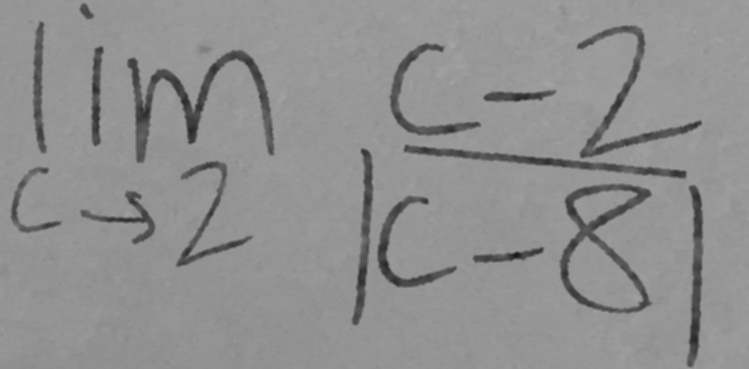 lim c - 2
c → 2 |c - 8|